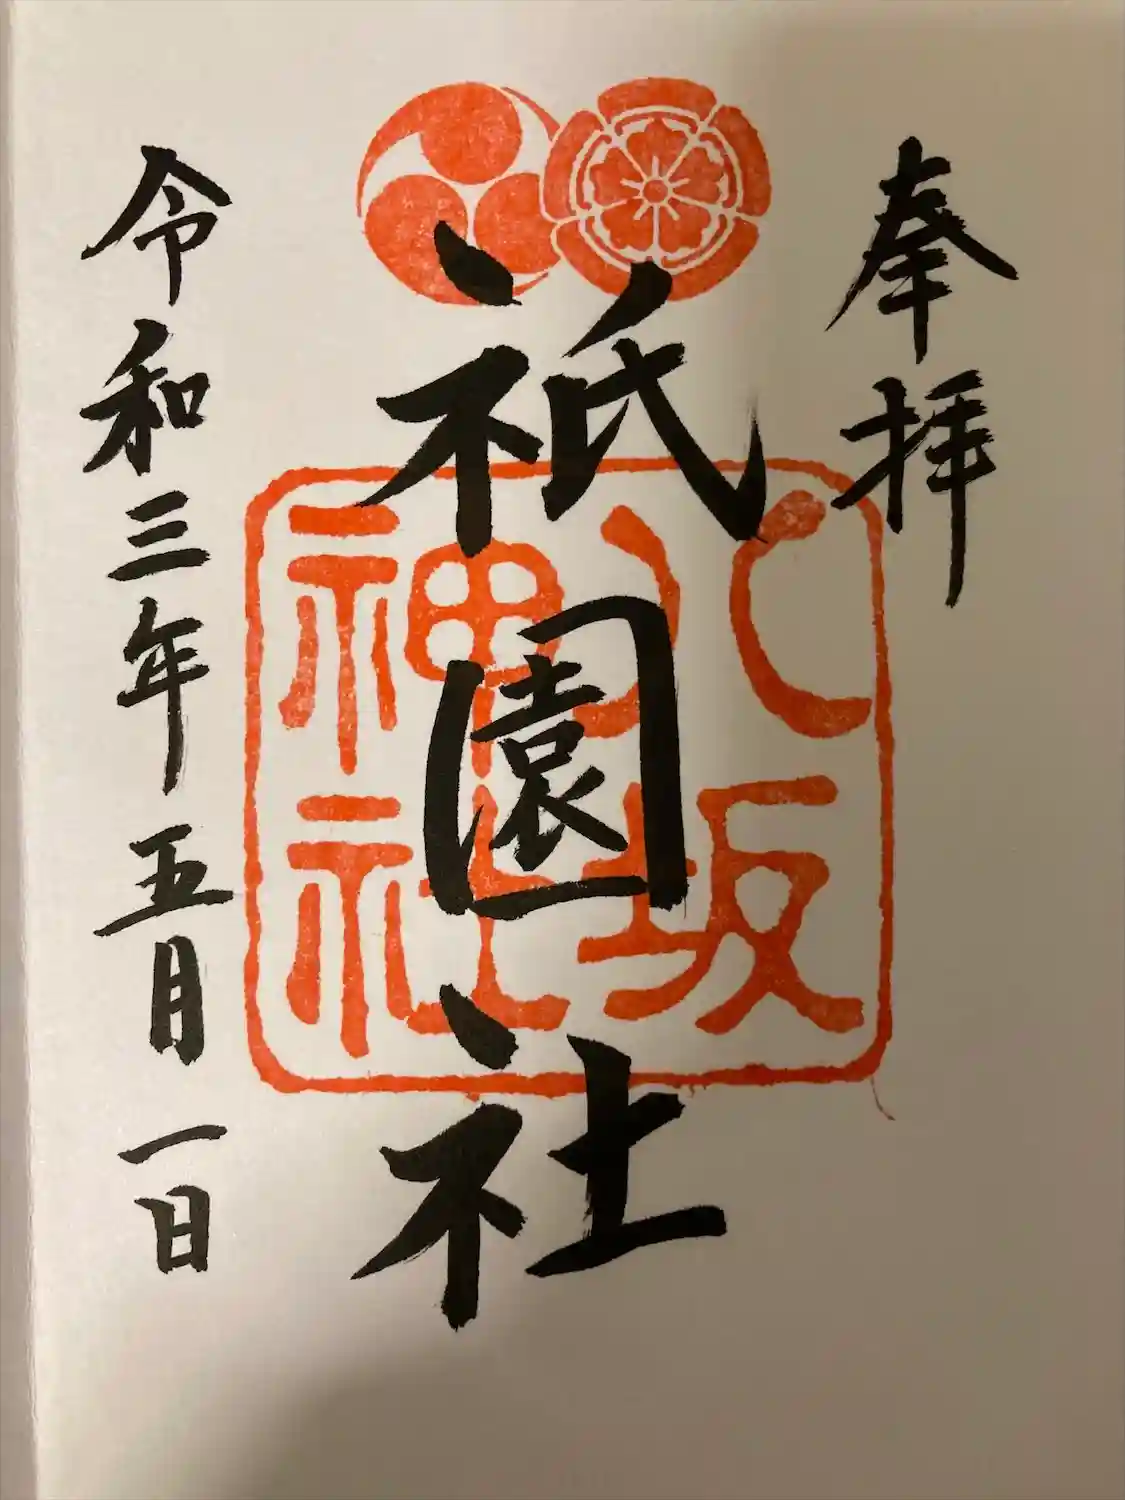 奉拝
祇園社
八坂
神社
令和三年五月一日